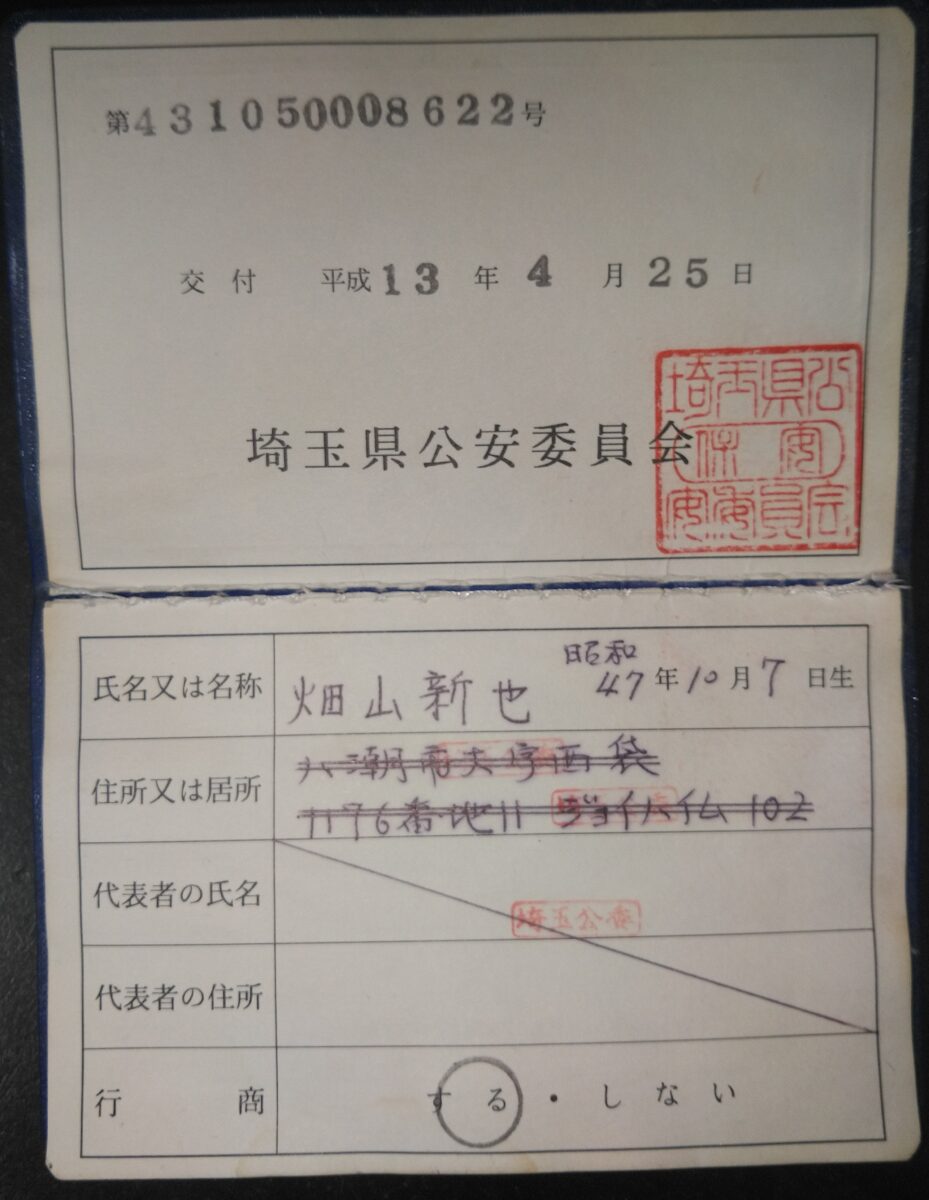 第431050008622号
交付 平成13年4月25日
埼玉県公安委員会
埼玉県公
保安
安委員会
氏名又は名称 畑山新也 昭和47年10月7日生
住所又は居所 八潮市大字西袋
1176番地11 102
代表者の氏名
埼玉公委
代表者の住所
行商 する・しない